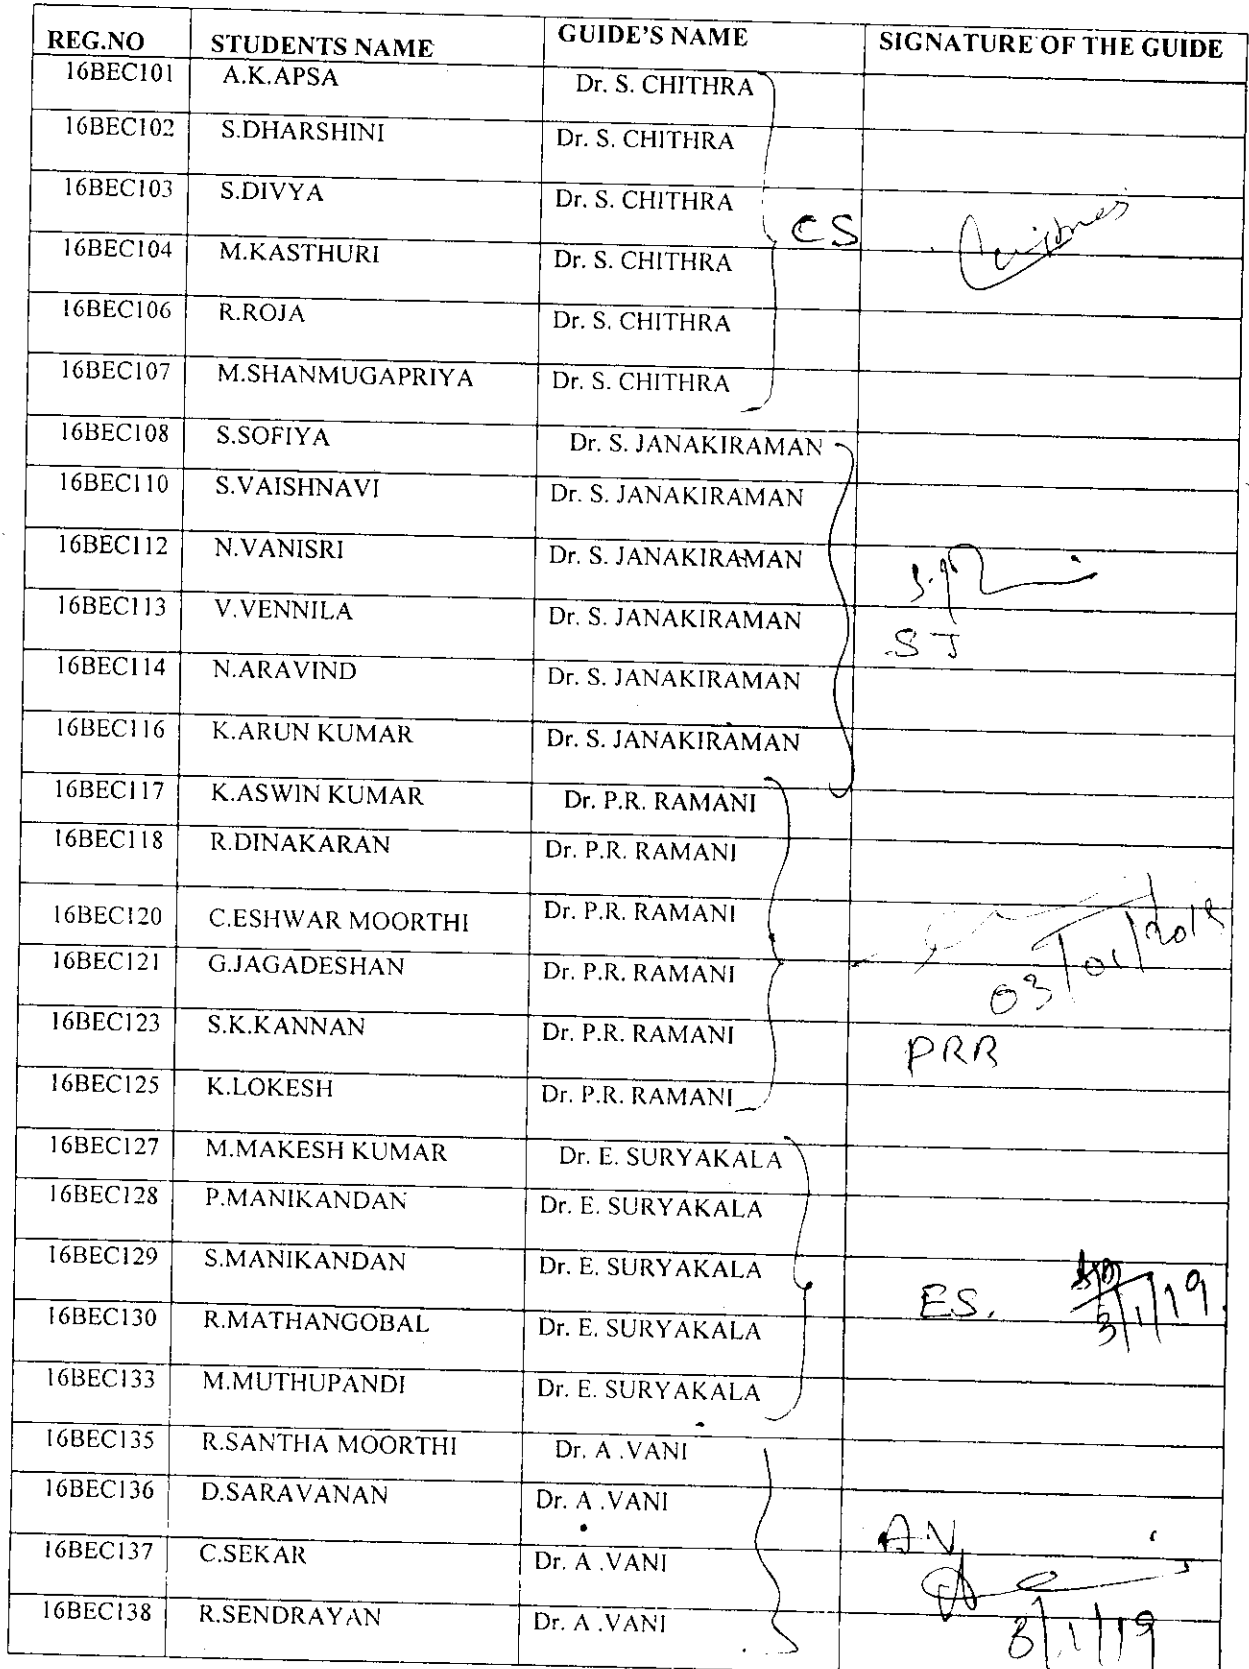 REG.NO STUDENTS NAME GUIDE'S NAME SIGNATURE OF THE GUIDE
16BEC101 A.K.APSA Dr. S. CHITHRA
16BEC102 S.DHARSHINI Dr. S. CHITHRA
16BEC103 S.DIVYA Dr. S. CHITHRA
CS
16BEC104 M.KASTHURI Dr. S. CHITHRA
16BEC106 R.ROJA Dr. S. CHITHRA
16BEC107 M.SHANMUGAPRIYA Dr. S. CHITHRA
16BEC108 S.SOFIYA Dr. S. JANAKIRAMAN
16BEC110 S.VAISHNAVI Dr. S. JANAKIRAMAN
16BEC112 N.VANISRI Dr. S. JANAKIRAMAN
16BEC113 V.VENNILA Dr. S. JANAKIRAMAN
SJ
16BEC114 N.ARAVIND Dr. S. JANAKIRAMAN
16BEC116 K.ARUN KUMAR Dr. S. JANAKIRAMAN
16BEC117 K.ASWIN KUMAR Dr. P.R. RAMANI
16BEC118 R.DINAKARAN Dr. P.R. RAMANI
16BEC120 C.ESHWAR MOORTHI Dr. P.R. RAMANI
16BEC121 G.JAGADESHAN Dr. P.R. RAMANI
03/01/2019
16BEC123 S.K.KANNAN Dr. P.R. RAMANI PRR
16BEC125 K.LOKESH Dr. P.R. RAMANI
16BEC127 M.MAKESH KUMAR Dr. E. SURYAKALA
16BEC128 P.MANIKANDAN Dr. E. SURYAKALA
16BEC129 S.MANIKANDAN Dr. E. SURYAKALA
ES. 3/1/19.
16BEC130 R.MATHANGOBAL Dr. E. SURYAKALA
16BEC133 M.MUTHUPANDI Dr. E. SURYAKALA
16BEC135 R.SANTHA MOORTHI Dr. A .VANI
16BEC136 D.SARAVANAN Dr. A .VANI
AV
16BEC137 C.SEKAR Dr. A .VANI
16BEC138 R.SENDRAYAN Dr. A .VANI
3/1/19